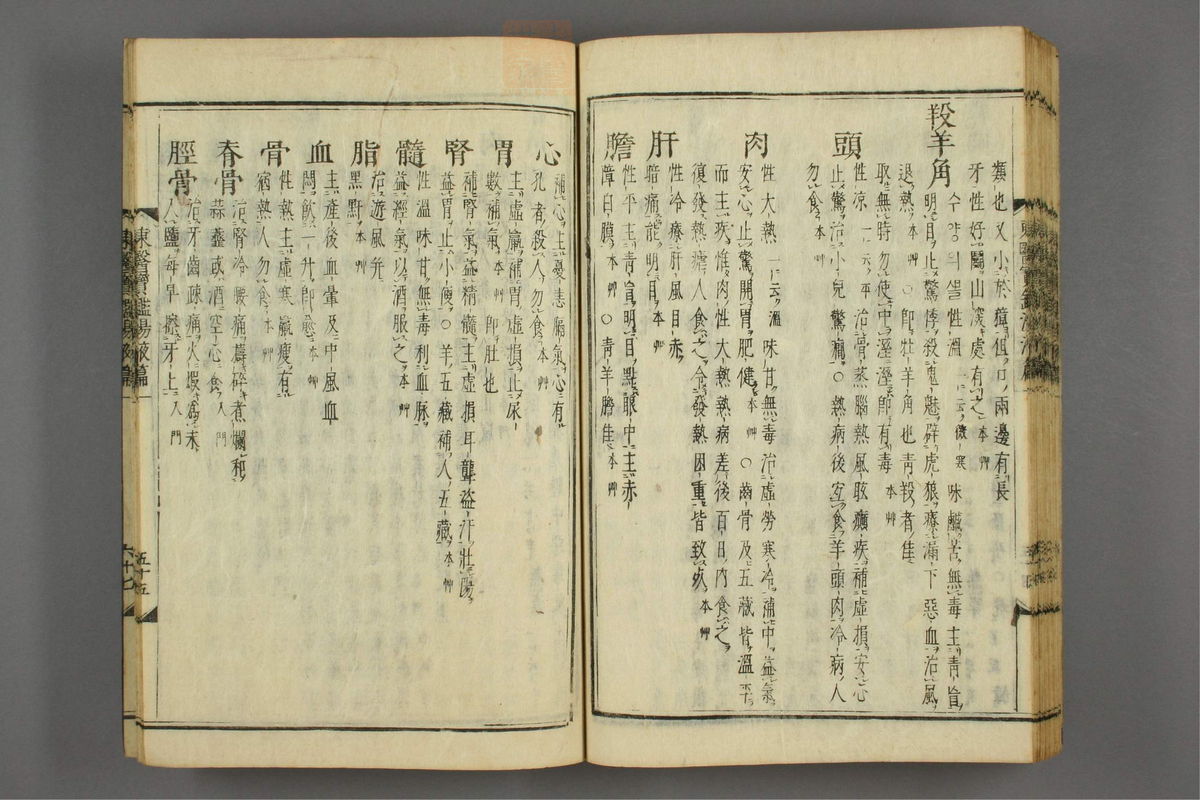 類也又小於麞但口兩邊有長
牙性好鬪山澤處有之本艸
羖羊角
수양의ᄲᅳᆯ性溫一云微寒味鹹苦無毒主靑盲
明目止驚悸殺鬼魅辟虎狼療漏下惡血治風
退熱○卽牡羊角也靑羖者佳
取無時勿使中溼溼卽有毒本艸
頭
性涼一云平治骨蒸腦熱風眩癲疾補虛損安心
止驚治小兒驚癎○熱病後宜食羊頭肉冷病人
勿食本艸
肉
性大熱一云溫味甘無毒治虛勞寒冷補中益氣
安心止驚開胃肥健本艸○齒骨及五藏皆溫平
而主疾惟肉性大熱熱病差後百日內食之
復發熱瘧人食之令發熱困重皆致死本艸
肝
性冷療肝風目赤
暗痛能明目本艸
膽
性平主靑盲明目點眼中主赤
障白膜本艸○靑羊膽佳本艸
心
補心主憂恚膈氣心有
孔者殺人勿食本艸
胃
主虛羸補胃虛損止尿
數補氣本艸卽肚也
腎
補腎氣益精髓主虛損耳聾盜汗壯陽
益胃止小便○羊五藏補人五藏本艸
髓
性溫味甘無毒利血脈
益經氣以酒服之本艸
脂
治遊風幷
黑䵟本艸
血
主產後血暈及中風血
悶飮一升卽愈本艸
骨
性熱主虛寒羸瘦有
宿熱人勿食本艸
脊骨
治腎冷腰痛擣碎煮爛和
蒜虀或酒空心食入門
脛骨
治牙齒疎痛火煆爲末
入鹽每早擦牙上入門
東醫寶鑑湯液篇一
五十五
六十七